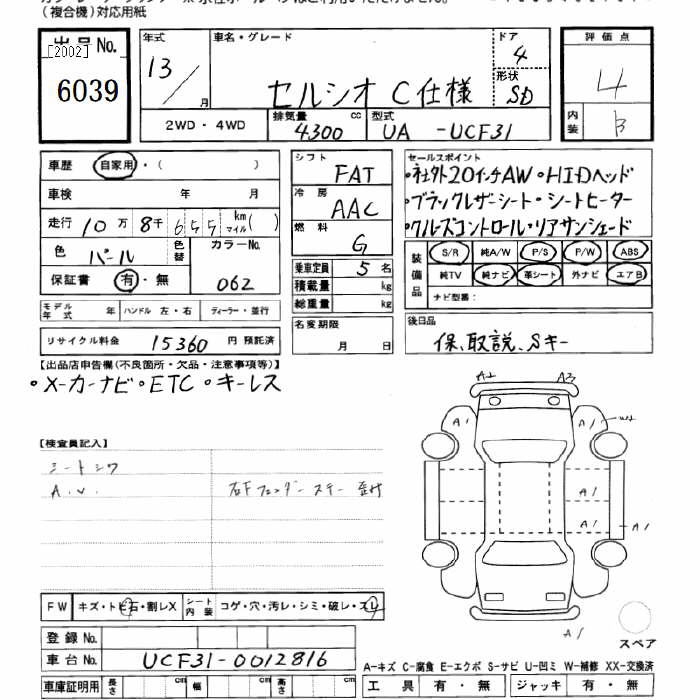 (複合機)対応用紙
出品No.
[2002]
6039
年式
13/
月
車名・グレード
セルシオ C仕様
ドア
4
形状
SD
評価点
4
内装
B
2WD・4WD
排気量
4300
cc
型式
UA -UCF31
車歴
自家用・( )
車検 年 月
走行 10万 8千 655 km マイル( )
色 パール
色替
カラーNo.
062
保証書 有・無
シフト FAT
冷房 AAC
燃料 G
乗車定員 5名
積載量 kg
総重量 kg
セールスポイント
・社外20インチAW・HIDヘッド
・ブラックレザーシート・シートヒーター
・クルーズコントロール・リアサンシェード
装備品
S/R 純A/W P/S P/W ABS
純TV 純ナビ 革シート 外ナビ エアB
ナビ型番:
モデル年式 年 ハンドル 左・右 ディーラー・並行
名変期限 月 日
後日品
保、取説、Sキー
リサイクル料金 15360 円 預託済
【出品店申告欄(不良箇所・欠品・注意事項等)】
・メーカーナビ・ETC・キーレス
【検査員記入】
シートシワ
A.U.
右Fフェンダーステー歪み
A2 A3
A1 A1
A1
A1
A1 A1
A1
FW キズ・トビ石・割レX シート内装 コゲ・穴・汚レ・シミ・破レ・スレ
スペア
登録No.
車台No. UCF31-0012816
A-キズ C-腐食 E-エクボ S-サビ U-凹ミ W-補修 XX-交換済
車庫証明用 長さ cm 幅 cm 高さ cm
工具 有・無 ジャッキ 有・無